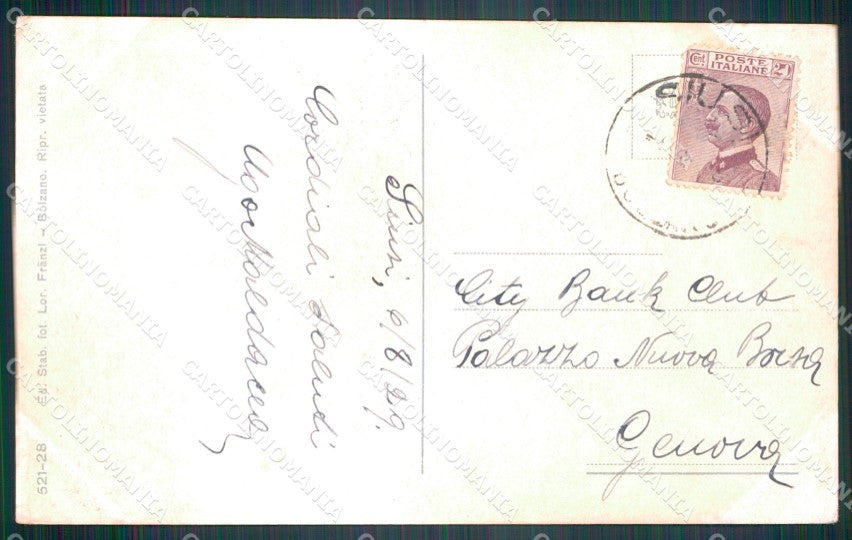 Siusi, 6/8/29.
Cordiali saluti
Ugo Maldacea
City Bank Club
Palazzo Nuova Borsa
Genova
POSTE
ITALIANE
Cent. 20
SIUSI
521-28 Ed. Stab. fot Lor. Fränzl - Bolzano. Ripr. vietata
CARTOLINOMANIA